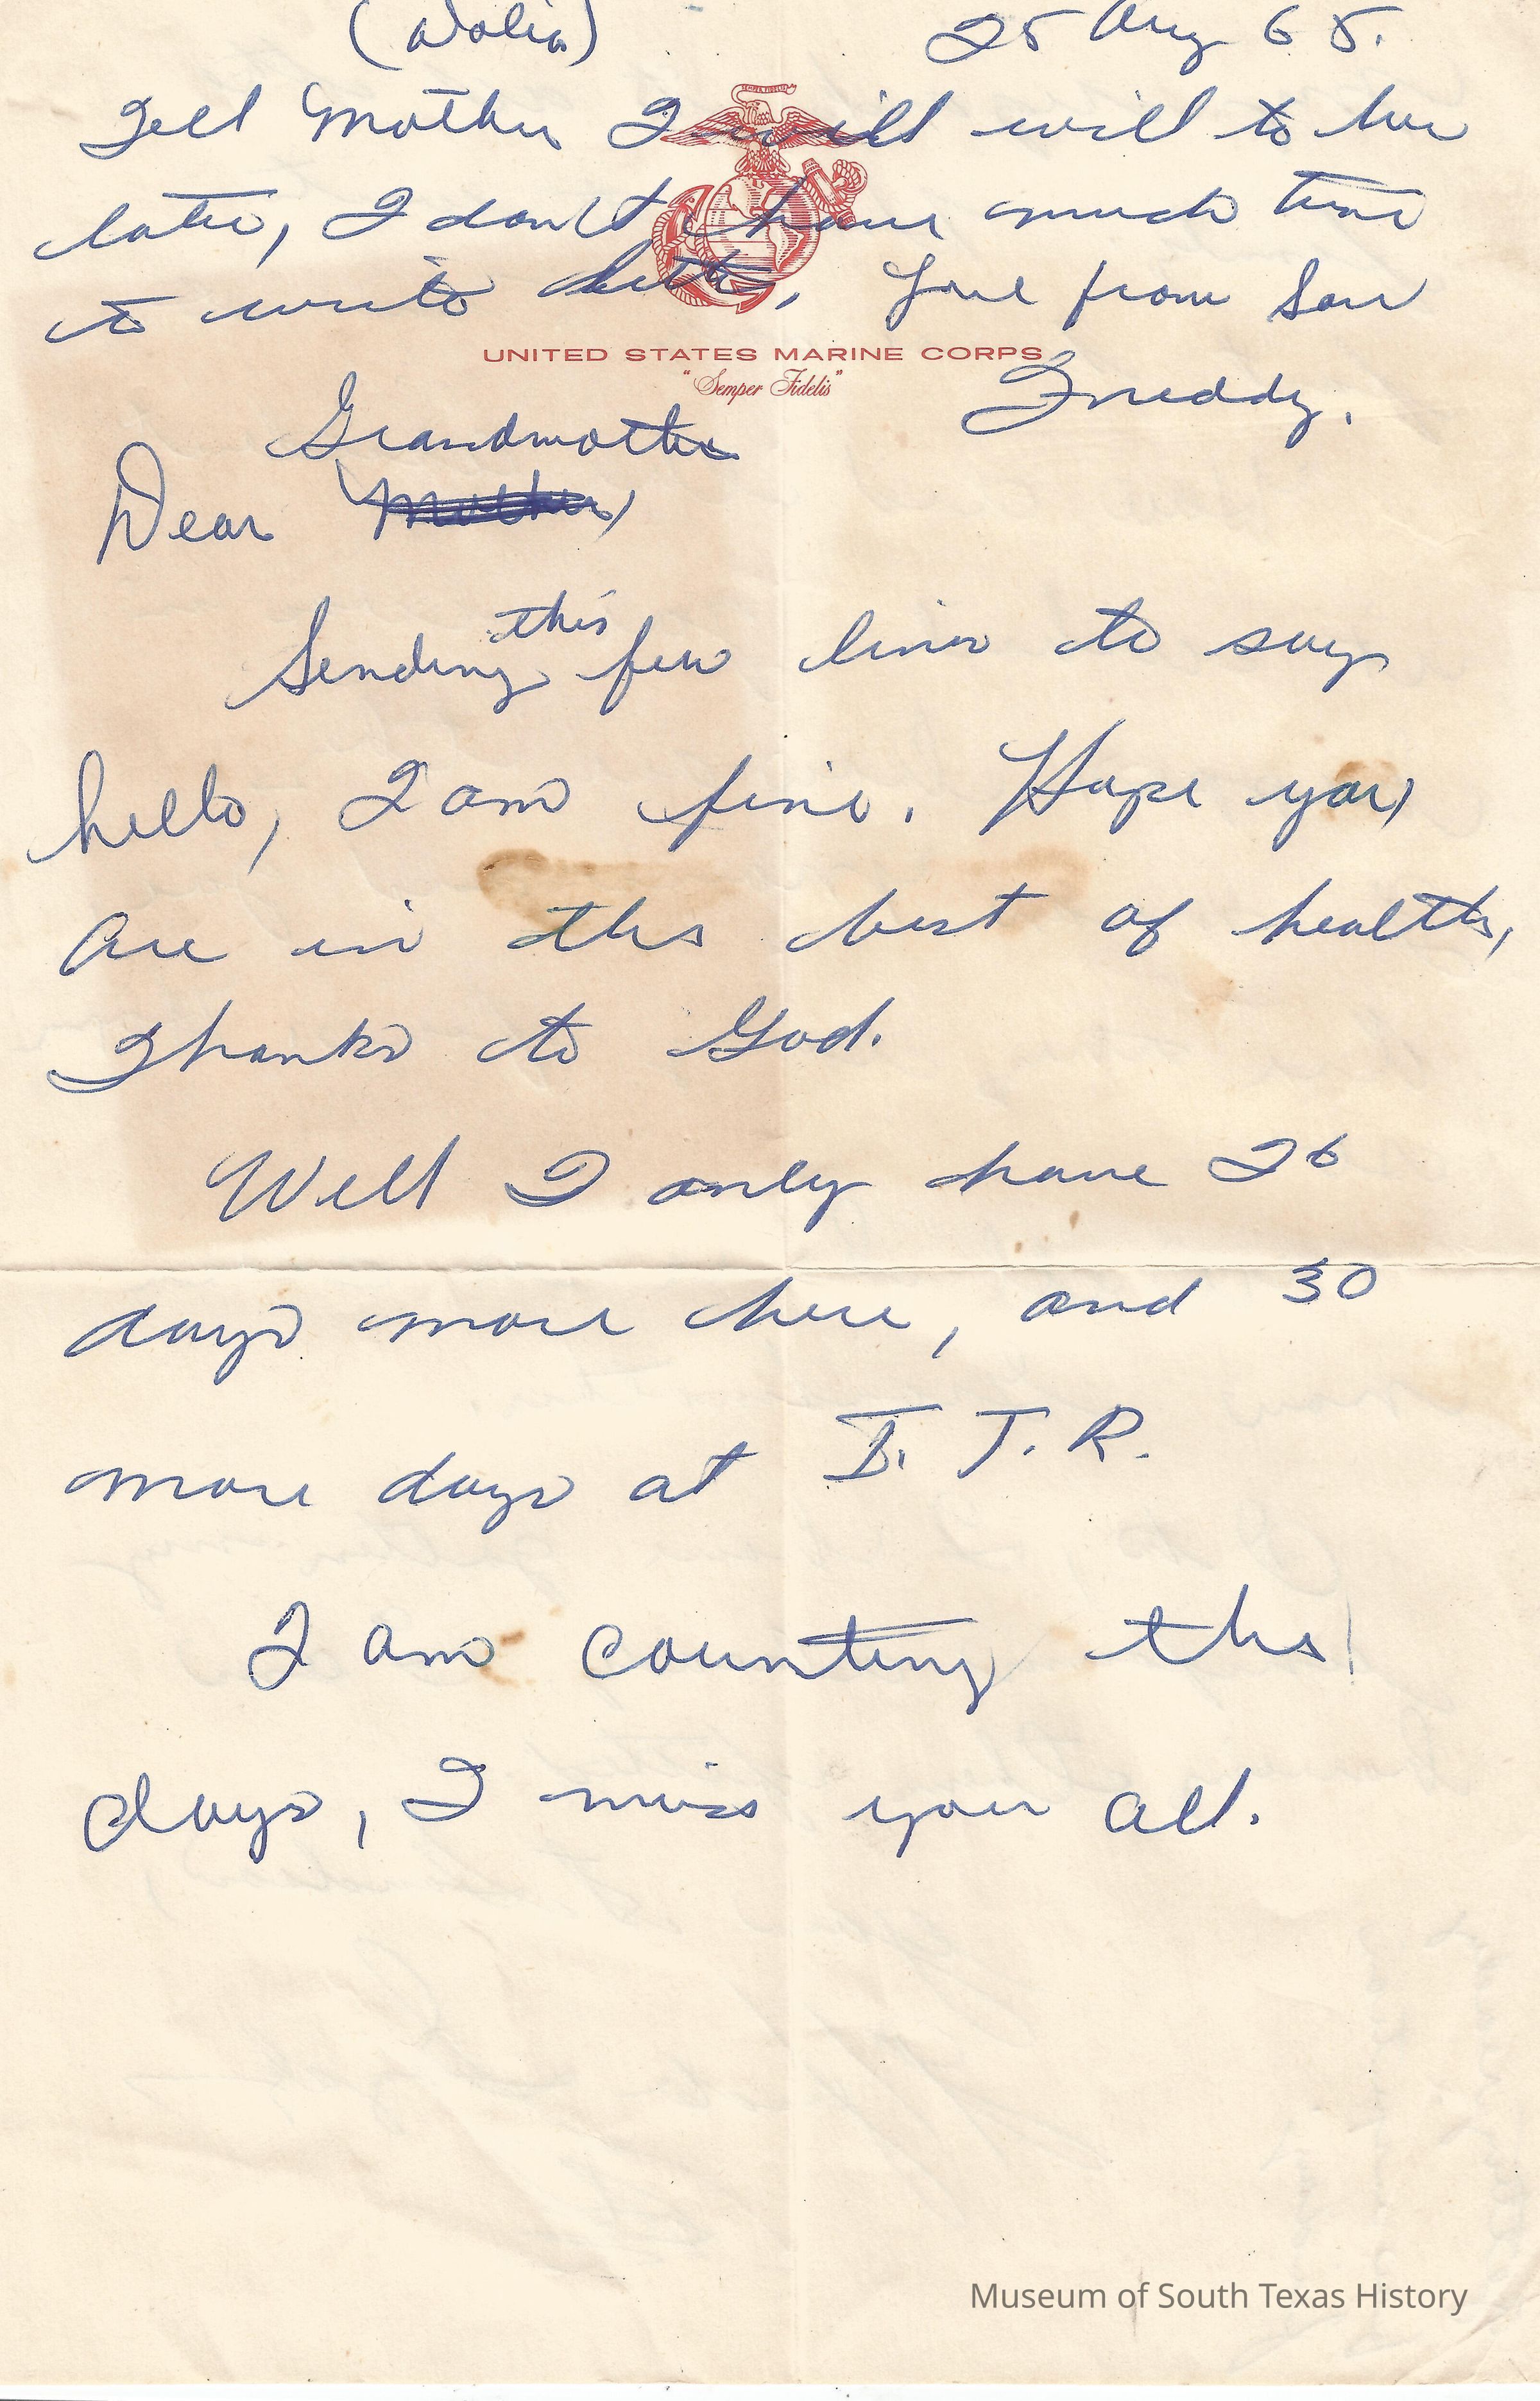 (Dolia) 25 Aug 65.
Tell Mother I will will to her
later, I don't have much time
to write letter, Love from Son
Freddy.
UNITED STATES MARINE CORPS
"Semper Fidelis"
Grandmother
Dear Mother,
Sending this few lines to say
hello, I am fine. Hope you,
are in the best of health,
Thanks to God.
Well I only have 26
days more here, and 30
more days at I. T. R.
I am counting the
days, I miss you all.
Museum of South Texas History